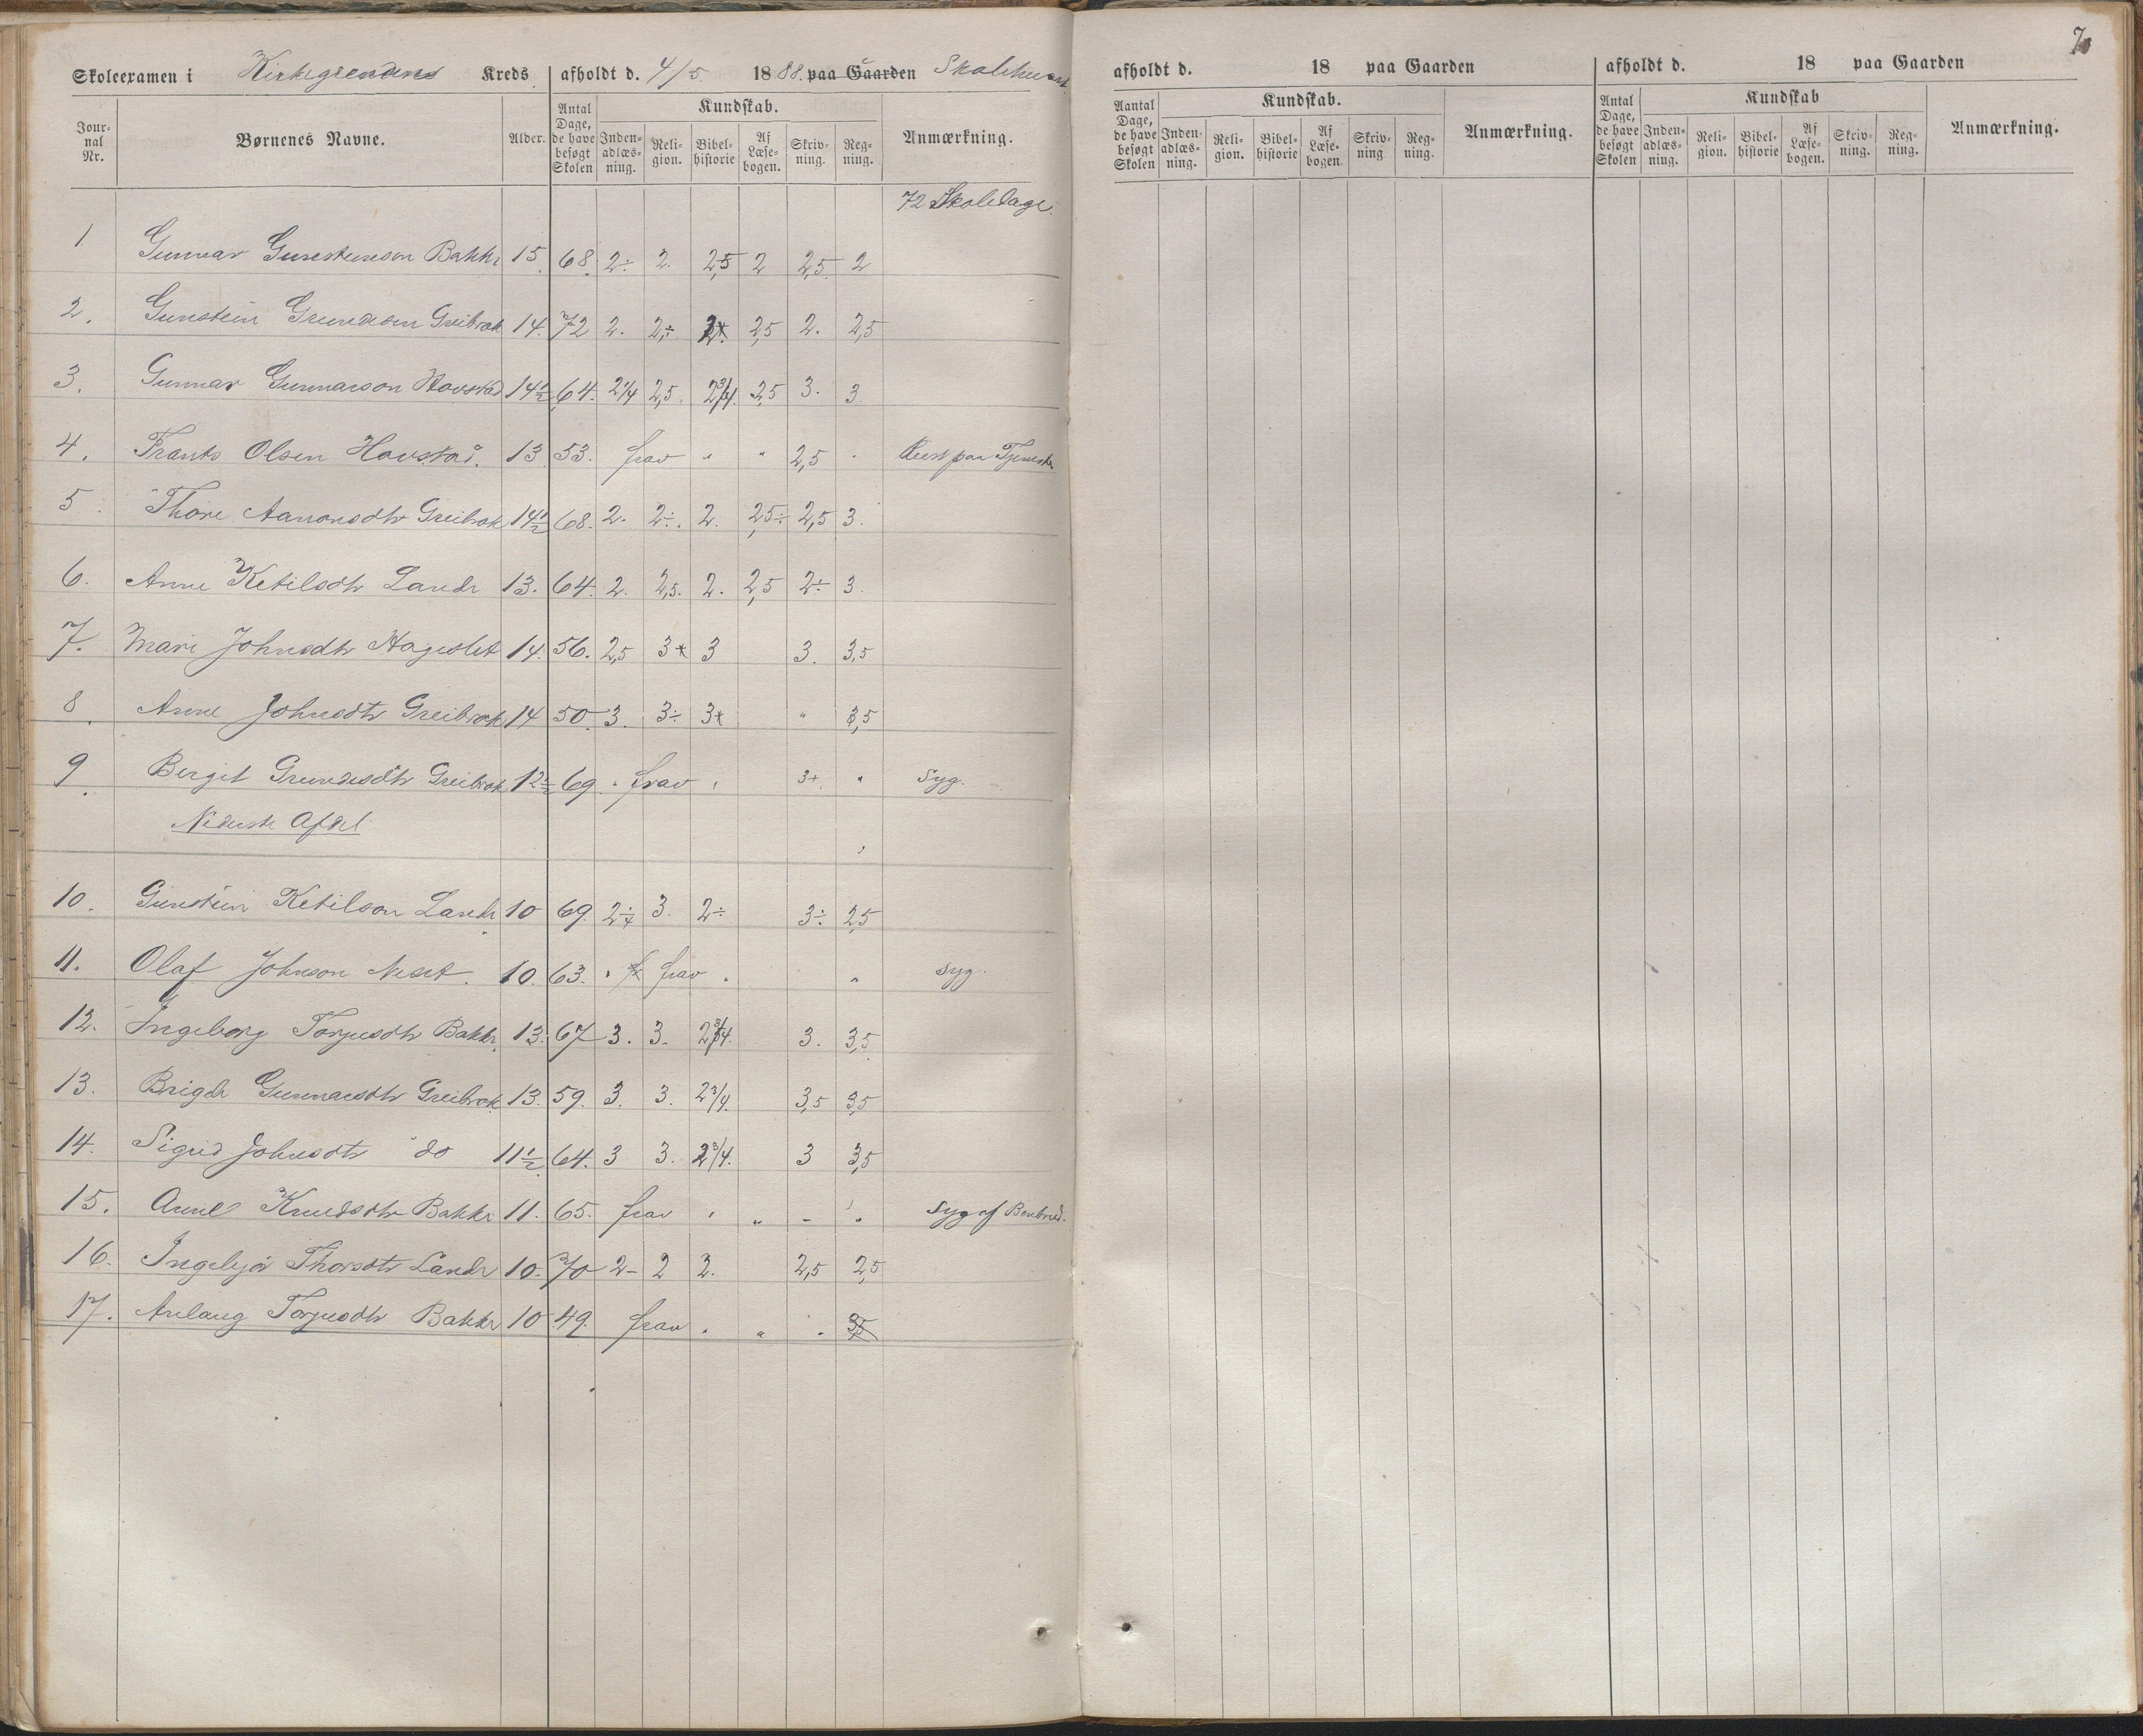 Skoleexamen i Kirkegrendens Kreds afholdt d. 4/5 1888. paa Gaarden Skolehuset
Jour-nal Nr. Børnenes Navne. Alder. Antal Dage, de have besøgt Skolen Kundskab. Inden-adlæs-ning. Reli-gion. Bibel-historie Af Læse-bogen. Skriv-ning. Reg-ning. Anmærkning.
72 Skoledage.
1. Gunnar Gunstenson Bakke 15. 68. 2÷ 2. 2,5 2 2,5. 2
2. Gunstein Grundeson Greibrok 14. 72 2. 2,÷ 2,5 2. 2,5
3. Gunnar Gunnarson Hovstad 14½ 64. 2¼ 2,5. 2¾. 2,5 3. 3.
4. Frants Olsen Hovstad. 13. 53. frav " " 2,5 " Reist paa Tjeneste
5. Thore Aanonsdtr Greibrok 14½ 68. 2. 2÷. 2. 2,5÷ 2,5 3.
6. Anne Ketilsdtr Lande 13. 64. 2. 2,5. 2. 2,5 2÷ 3.
7. Mari Johnsdtr Hageslet 14. 56. 2,5 3+ 3 3. 3,5
8. Anne Johnsdtr Greibrok 14 50. 3. 3÷ 3+ " 3,5
9. Bergit Grundesdtr Greibrok 12½ 69 " frav " 3+ " Syg.
Nederste Afdel
10. Gunstein Ketilson Lande 10 69. 3. 2÷ 3÷ 2,5
11. Olaf Johnson Neset. 10. 63. " frav " " syg.
12. Ingeborg Torjusdtr Bakke 13. 67 3. 3. 2¾. 3. 3,5
13. Brigde Gunnarsdtr Greibrok 13. 59. 3. 3. 2¾. 3,5 3,5
14. Sigrid Johnsdtr do 11½ 64. 3 3. 2¾. 3 3,5
15. Anne Knudsdtr Bakke 11. 65. frav " " - " Syg af Benbrud.
16. Ingebjør Thorsdtr Lande 10. 70 2- 2 2. 2,5 2,5
17. Anlaug Torjusdtr Bakke 10 49. frav " " " 3,5
7
afholdt d. 18 paa Gaarden
Aantal Dage, de have besøgt Skolen Kundskab. Inden-adlæs-ning. Reli-gion. Bibel-historie Af Læse-bogen. Skriv-ning Reg-ning. Anmærkning.
afholdt d. 18 paa Gaarden
Antal Dage, de have besøgt Skolen Kundskab Inden-adlæs-ning. Reli-gion. Bibel-historie Af Læse-bogen. Skriv-ning. Reg-ning. Anmærkning.